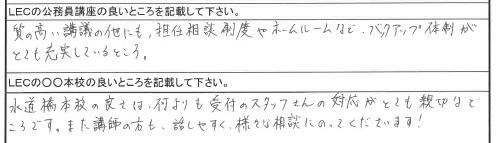 LECの公務員講座の良いところを記載して下さい。
質の高い講議の他にも、担任相談制度やホームルームなど、バックアップ体制が
とても充実しているところ。
LECの〇〇本校の良いところを記載して下さい。
水道橋本校の良さは、何よりも受付のスタッフさんの対応がとても親切なと
ころです。また講師の方も、話しやすく、様々な相談にのってくださいます!